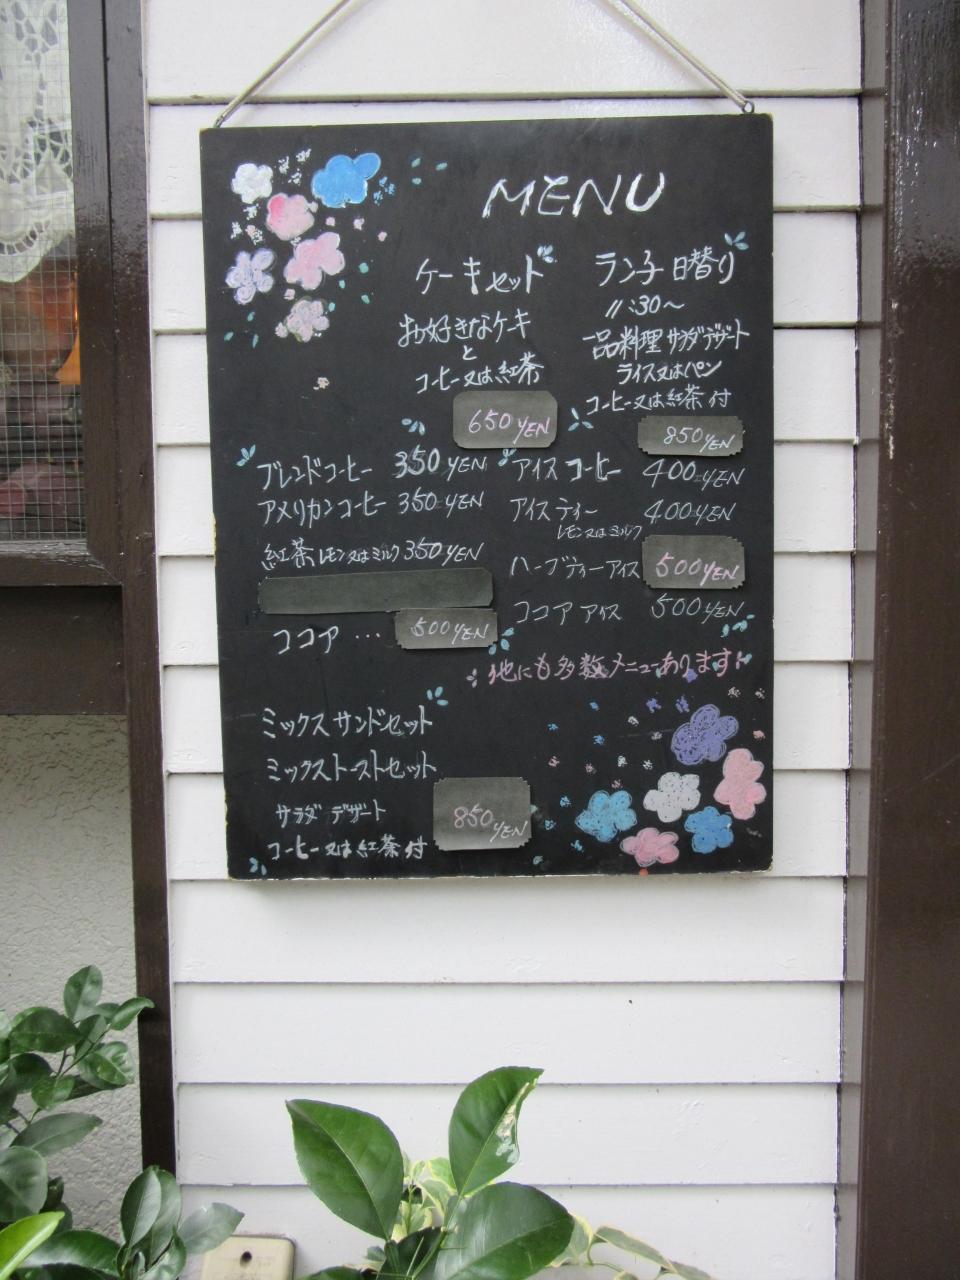 MENU
ケーキセット
お好きなケーキ
と
コーヒー又は紅茶
650YEN
ランチ 日替り
11:30〜
一品料理 サラダデザート
ライス又はパン
コーヒー又は紅茶付
850YEN
ブレンドコーヒー 350YEN
アメリカンコーヒー 350YEN
紅茶 レモン又はミルク 350YEN
ココア … 500YEN
アイスコーヒー 400YEN
アイスティー 400YEN
レモン又はミルク
ハーブティーアイス 500YEN
ココア アイス 500YEN
他にも多数メニューあります
ミックスサンドセット
ミックストーストセット
サラダ デザート
コーヒー又は紅茶付
850YEN